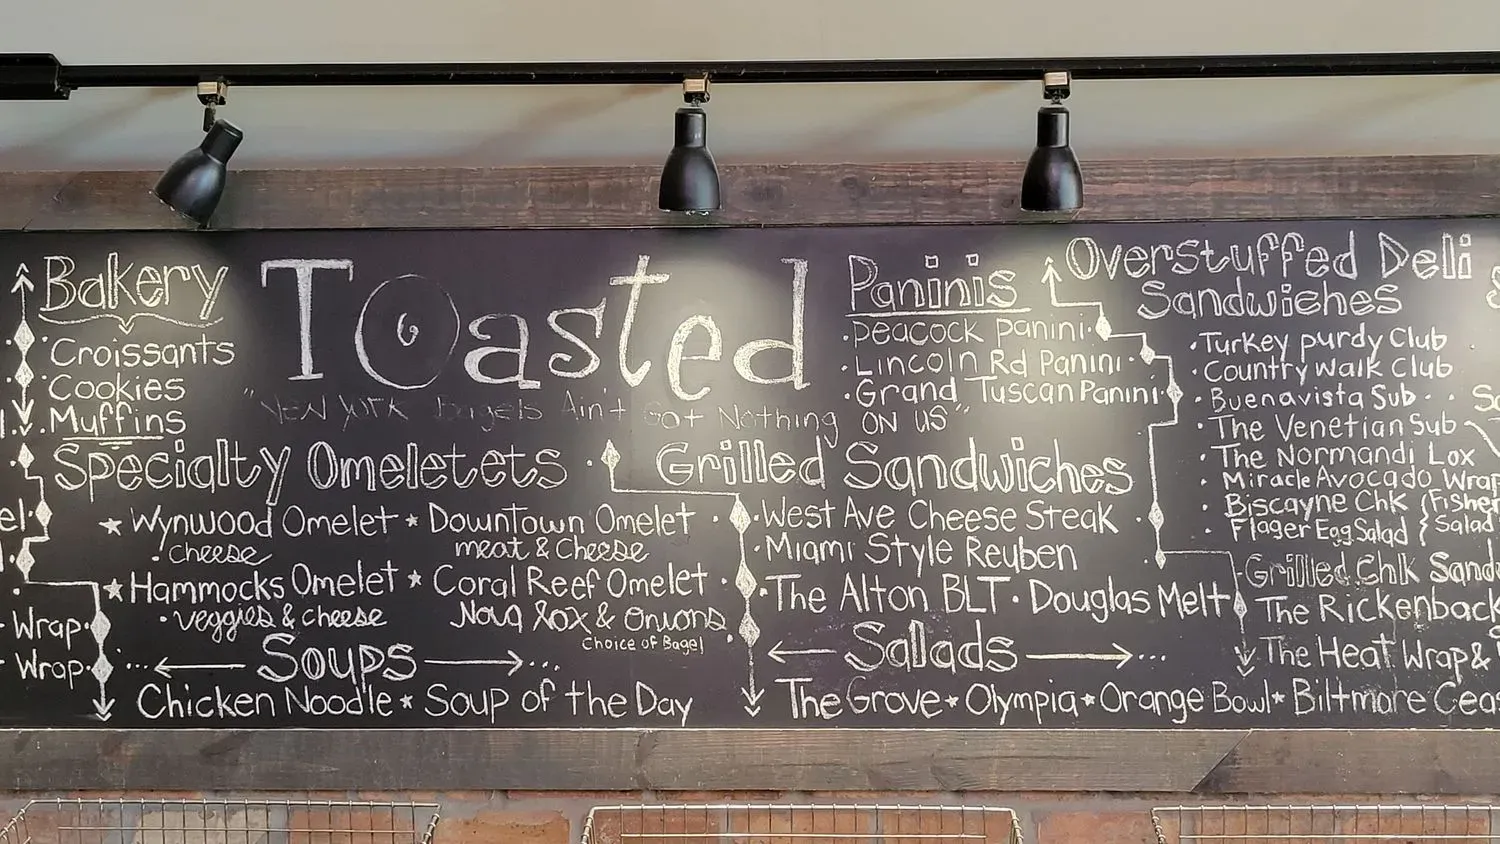 Bakery
Croissants
Cookies
Muffins
Toasted
"New York Bagels Ain't Got Nothing ON US"
Paninis
Peacock Panini
Lincoln Rd Panini
Grand Tuscan Panini
Overstuffed Deli
Sandwiches
Turkey Purdy Club
Country Walk Club
Buenavista Sub
The Venetian Sub
The Normandi Lox
Miracle Avocado Wrap
Biscayne Chk
Flager Egg Salad
{ Salad
Specialty Omeletets
Wynwood Omelet
cheese
Downtown Omelet
meat & Cheese
Hammocks Omelet
veggies & cheese
Coral Reef Omelet
Nova lox & Onions
Choice of Bagel
Wrap
Wrap
Grilled Sandwiches
West Ave Cheese Steak
Miami Style Reuben
The Alton BLT · Douglas Melt
Grilled Chk
The
The Heat Wrap &
Soups
Chicken Noodle * Soup of the Day
Salads
The Grove * Olympia * Orange Bowl * Biltmore